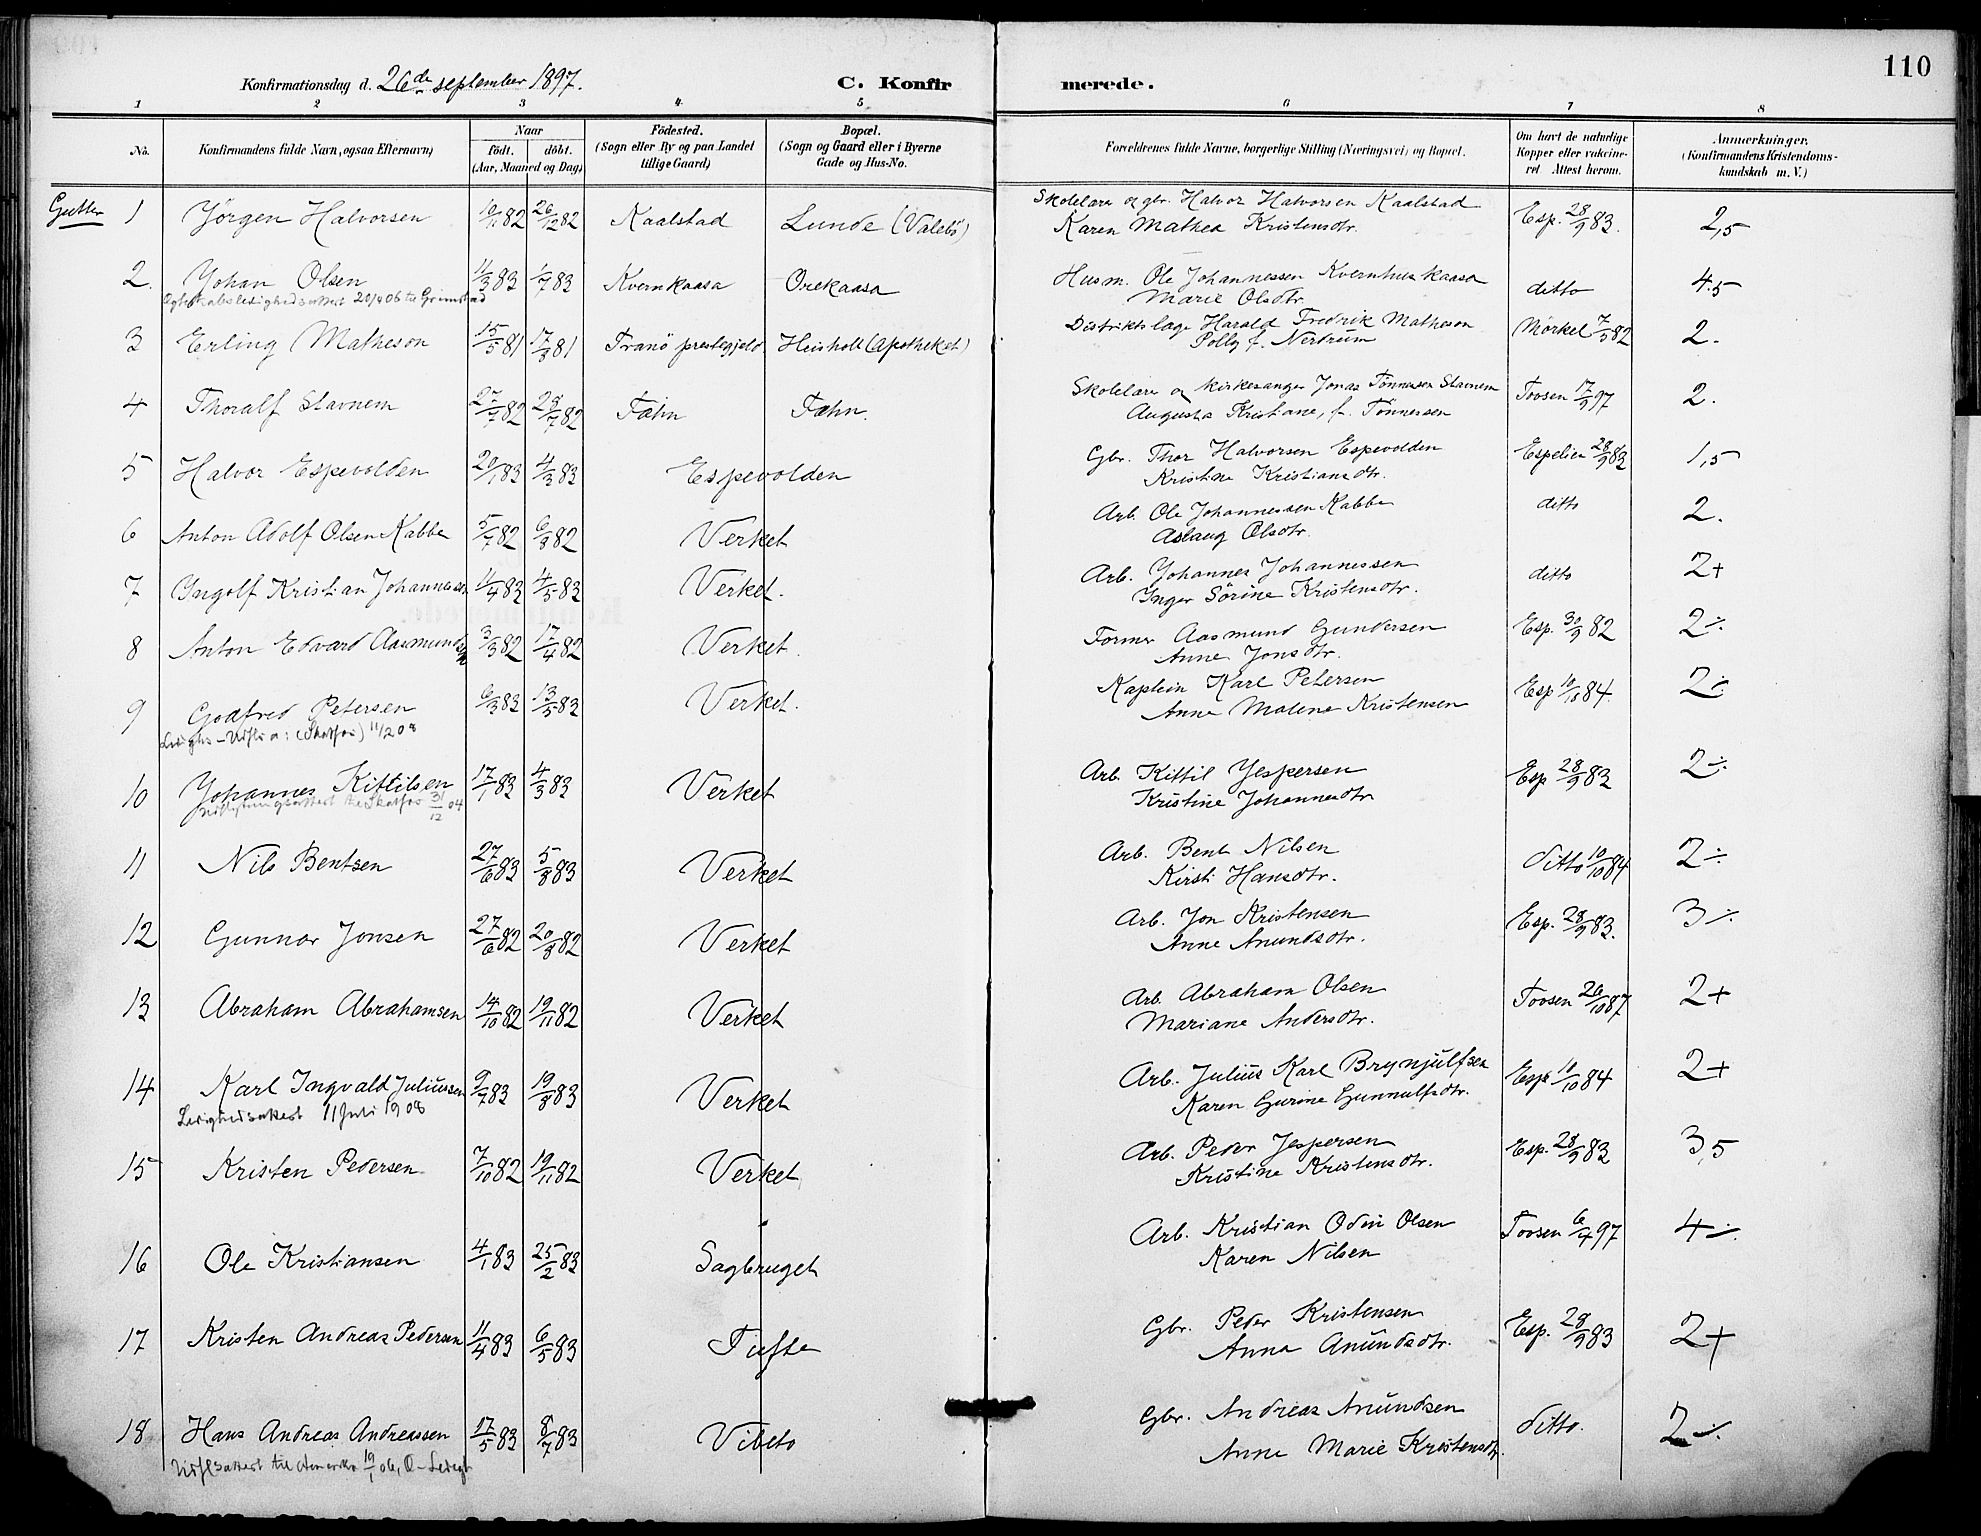 110
Konfirmationsdag d. 26de september 1897. C. Konfirmerede.
1 2 3 4 5 6 7 8
No. Konfirmandens fulde Navn, ogsaa Efternavn) Naar födt. döbt. (Aar, Maaned og Dag) Födested. (Sogn eller By og paa Landet tillige Gaard) Bopæl. (Sogn og Gaard eller i Byerne Gade og Hus-No. Forældrenes fulde Navne, borgerlige Stilling (Næringsvei) og Bopæl. Om havt de naturlige Kopper eller vakcineret. Attest herom. Anmerkninger. (Konfirmandens Kristendomskundskab m. V.)
Gutter 1 Jörgen Halvorsen 10/11 82 26/12 82 Kaalstad Lunde (Valebö) Skolelærer og gbr. Halvor Halvorsen Kaalstad Esp. 28/9 83. 2,5
Karen Mathea Kristensdtr.
2. Johan Olsen 11/3 83 1/7 83 Kvernkaasa Orekaasa Husm. Ole Johannessen Kvernhuskaasa ditto 4.5
Ægteskabsledighedsattest 20/4 06 til Grimstad Marie Olsdtr.
3 Erling Matheson 15/5 81 17/8 81 Tranö prestegjeld Heisholt (Apotheket) Distriktslæge Harald Fredrik Matheson Mörkel 7/5 82 2.
Polly f. Nertrum
4 Thoralf Stavnem 27/7 82 28/7 82 Fæhn Fæhn. Skolelærer og kirkesanger Jonas Tönnesen Stavnem Tovsen 17/9 97 2.
Augusta Kristiane, f. Tönnessen
5 Halvor Espevolden 20/1 83 4/3 83 Espevolden Gbr. Thor Halvorsen Espevolden Espelien 28/9 83 1,5
Kristine Kristiansdtr.
6 Anton Adolf Olsen Kabbe 5/7 82 6/8 82 Verket Arb. Ole Johannessen Kabbe ditto 2.
Aslaug Olsdtr.
7 Ingolf Kristian Johannessen 11/4 83 4/5 83 Verket. Arb. Johannes Johannessen ditto 2+
Inger Sörine Kristensdtr.
8 Anton Edvard Aasmundsen 3/3 82 17/4 82 Verket. Former Aasmund Gundersen Esp. 30/9 82 2÷
Anne Jonsdtr.
9 Godfred Petersen 6/3 83 13/5 83 Verket. Kaptein Karl Petersen Esp 10/10 84. 2÷
(Skotfos) 11/2 08 Anne Malene Kristensen
10 Johannes Kittilsen 17/1 83 4/3 83 Verket Arb. Kittil Jespersen Esp 28/9 83 2÷
Udflytningsattest til Skotfos 31/12 04 Kristine Johannesdtr
11 Nils Bentsen 27/6 83 5/8 83 Verket Arb. Bent Nilsen ditto 10/10 84 2÷
Kirsti Hansdtr.
12 Gunnar Jonsen 27/6 82 20/8 82 Verket Arb. Jon Kristensen Esp. 28/9 83. 3÷
Anne Anundsdtr.
13 Abraham Abrahamsen 14/10 82 19/11 82 Verket Arb. Abraham Olsen Tovsen 26/10 87 2+
Mariane Andersdtr.
14 Karl Ingvald Juliussen 9/7 83 19/8 83 Verket Arb. Julius Karl Brynjulfsen Esp 10/10 84 2+
Ledighedsattest 11 Juli 1908 Karen Gurine Gunnulfsdtr.
15 Kristen Pedersen 7/10 82 19/11 82 Verket Arb. Peder Jespersen Esp. 28/9 83 3,5
Kristine Kristensdtr.
16 Ole Kristiansen 4/1 83 25/2 83 Sagbruget Arb. Kristian Odin Olsen Tovsen 6/4 97 4÷
Karen Nilsen
17 Kristen Andreas Pedersen 11/4 83 6/5 83 Tufte Gbr. Peder Kristensen Esp. 28/9 83 2+
Anna Anundsdtr.
18 Hans Andreas Andreassen 17/5 83 8/7 83 Vibeto Gbr. Andreas Anundsen ditto. 2÷
Udflsattest til Amerika 19/1 06, Anne Marie Kristensdtr.